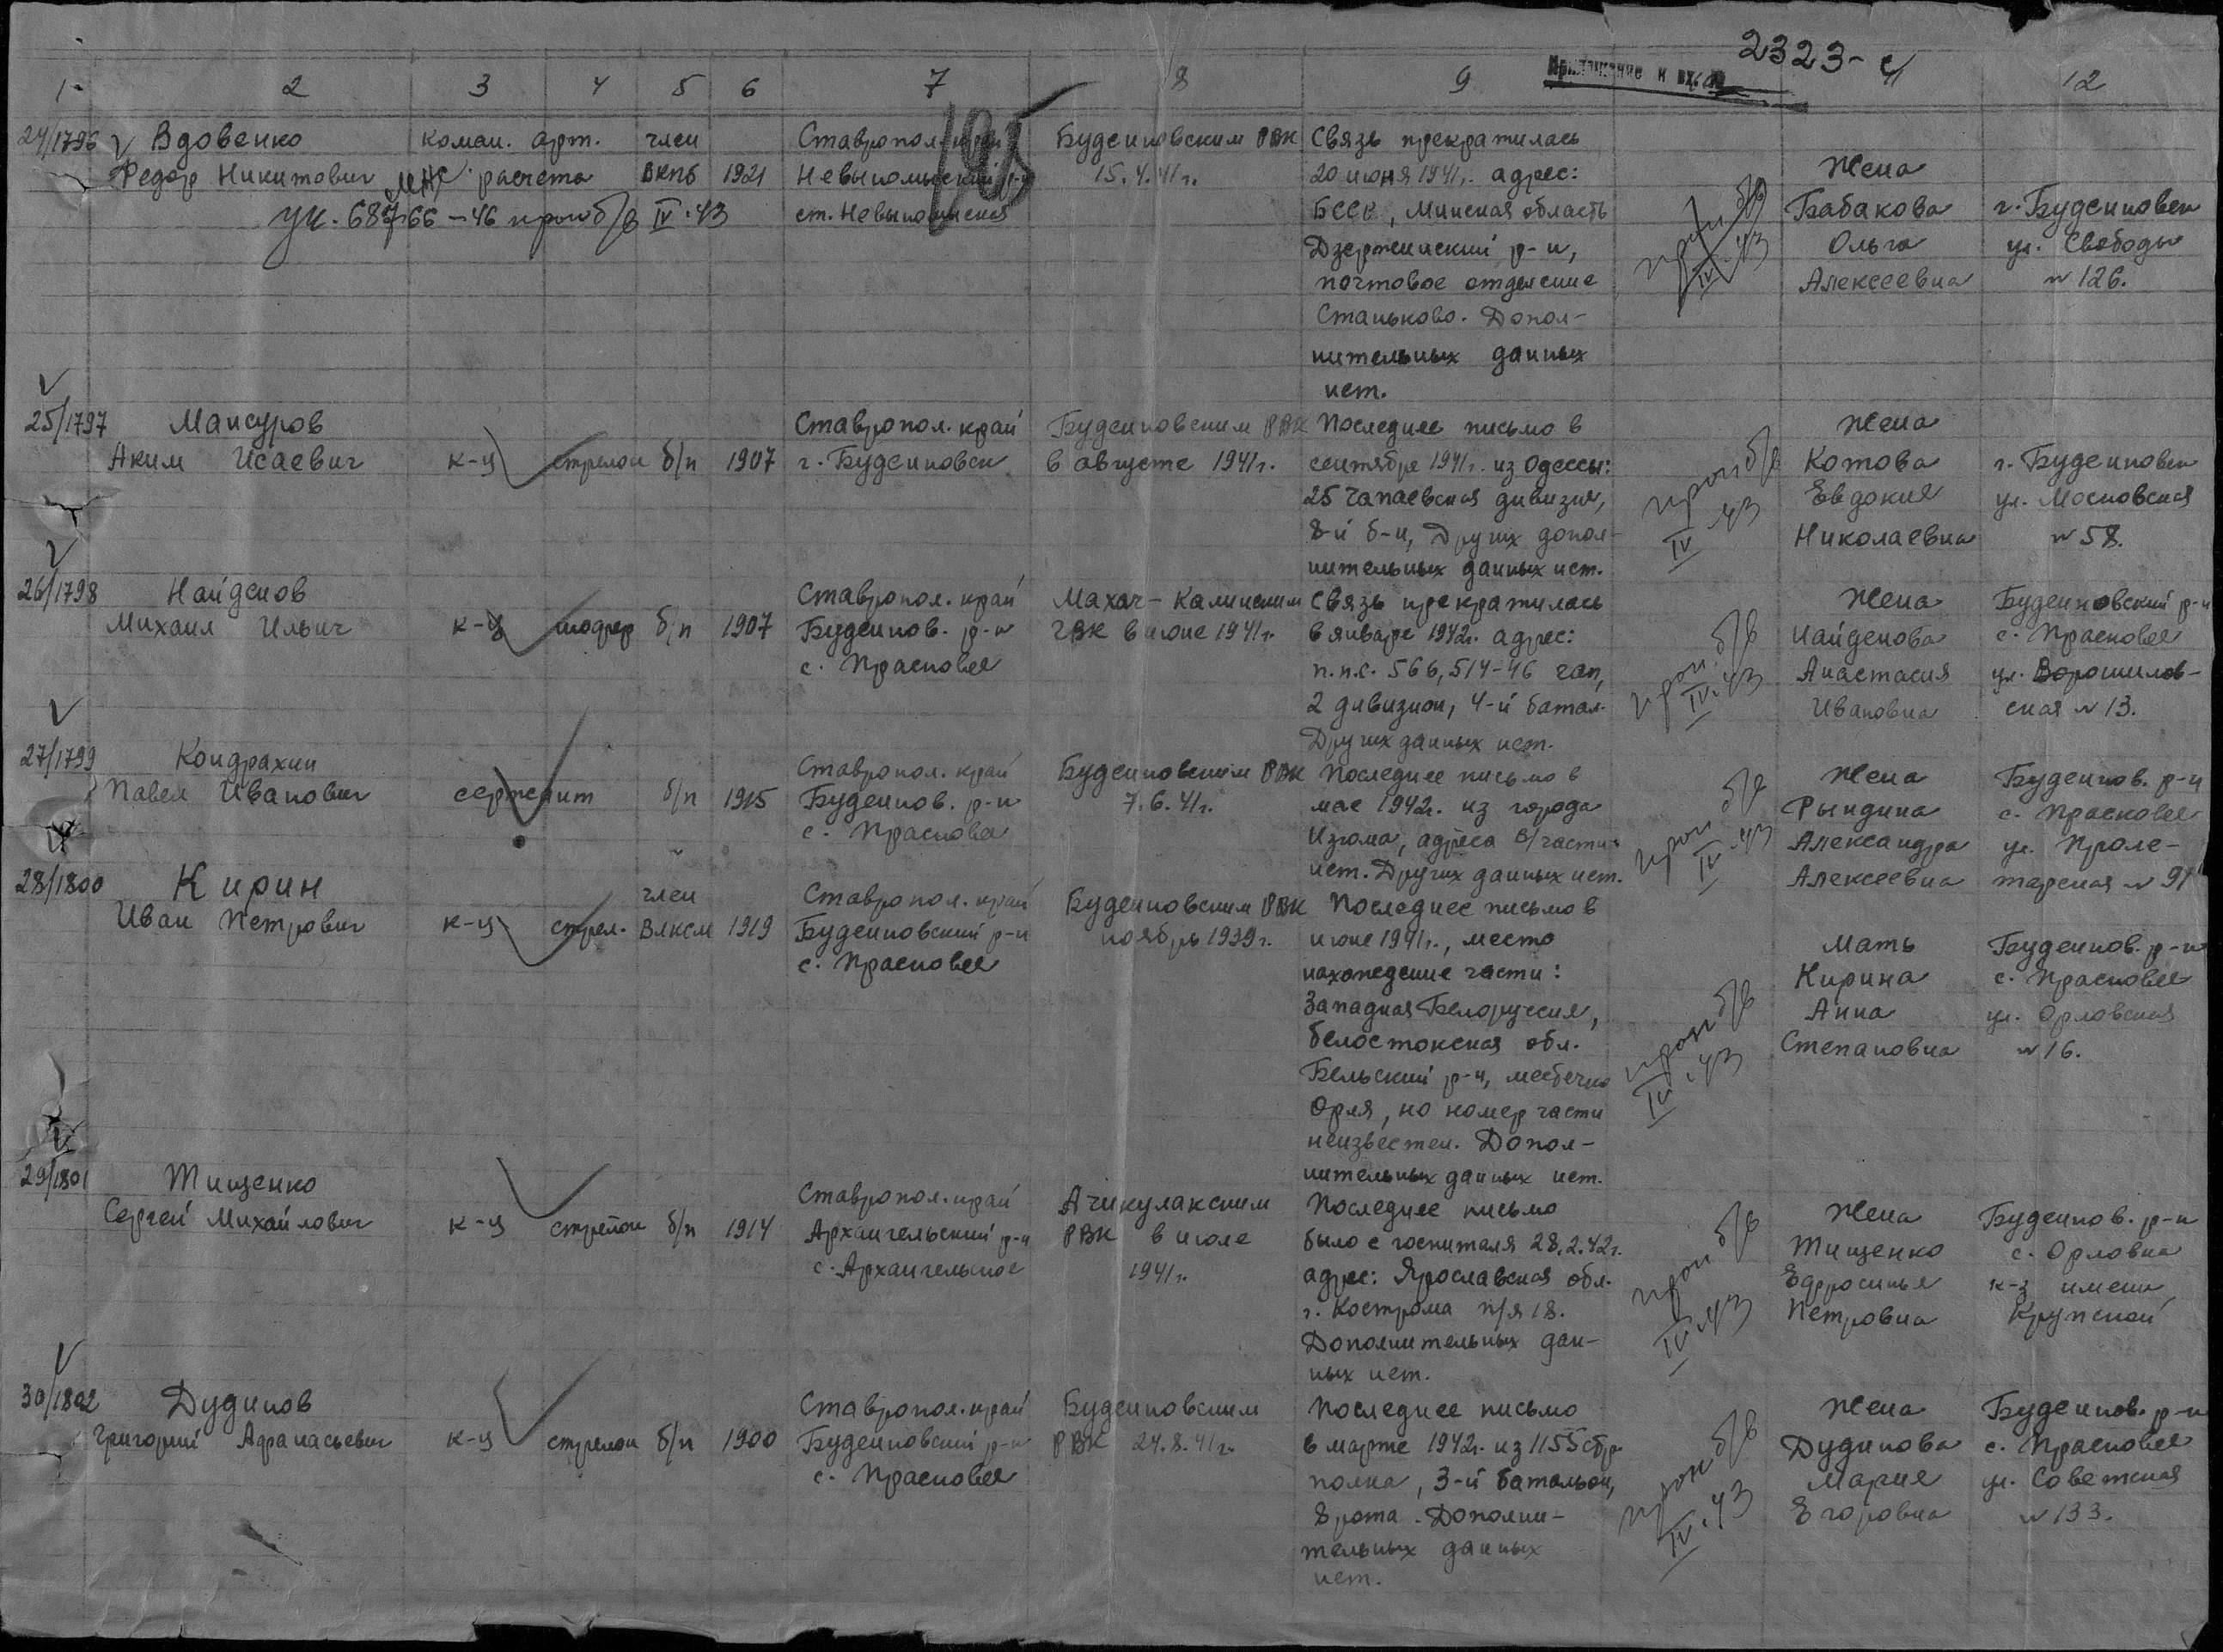 2323-с/
Приложение к вх.
1 2 3 4 5 6 7 8 9 12
195
24/1796 Вдовенко коман. арт. член Ставропол. край Буденновским РВК Связь прекратилась
Федор Никитович расчета ВКПб 1921 Невыномысский р-н 15.4.41г. 20 июня 1941г. адрес: Жена
ук. 68766-46 проп б/в IV.43 ст. Невыномысская БССР, Минская область проп б/в Бабакова г. Буденновск
Дзержинский р-н, IV.43 Ольга ул. Свободы
почтовое отделение Алексеевна № 126.
Станьково. Допол-
нительных данных
нет.
25/1797 Мансуров Ставропол. край Буденновским РВК Последнее письмо в Жена
Аким Исаевич к-ц стрелок б/п 1907 г. Буденновск в августе 1941г. сентябре 1941г. из Одессы: проп б/в Котова г. Буденновск
25 Чапаевская дивизия, IV.43 Евдокия ул. Московская
8-й б-н, Других допол- Николаевна № 58.
нительных данных нет.
26/1798 Найденов Ставропол. край Махач-Калинским Связь прекратилась Жена Буденновский р-н
Михаил Ильич к-ц шофер б/п 1907 Буденнов. р-н ГВК в июне 1941г. в январе 1942г. адрес: проп б/в Найденова с. Прасковея
с. Прасковея п.п.с. 566, 514-46 гап, IV.43 Анастасия ул. Ворошилов-
2 дивизион, 4-й батал. Ивановна ская № 13.
Других данных нет.
27/1799 Кондрахин Ставропол. край Буденновским РВК Последнее письмо в Жена Буденнов. р-н
Павел Иванович сержант б/п 1915 Буденнов. р-н 7.6.41г. мае 1942г. из города проп б/в Рындина с. Прасковея
с. Прасковея Изюма, адреса в/части IV.43 Александра ул. Проле-
нет. Других данных нет. Алексеевна тарская № 91
28/1800 Кирин член Ставропол. край Буденновским РВК Последнее письмо в
Иван Петрович к-ц стрел. ВЛКСМ 1919 Буденновский р-н ноябрь 1939г. июне 1941г., место Мать Буденнов. р-н
с. Прасковея нахождение части: Кирина с. Прасковея
Западная Белоруссия, проп б/в Анна ул. Орловская
Белостокская обл. IV.43 Степановна № 16.
Бельский р-н, местечко
Орля, но номер части
неизвестен. Допол-
нительных данных нет.
29/1801 Тищенко Ставропол. край Ачикулакским Последнее письмо Жена Буденнов. р-н
Сергей Михайлович к-ц стрелок б/п 1914 Архангельский р-н РВК в июле было с госпиталя 28.2.42г. проп б/в Тищенко с. Орловка
с. Архангельское 1941г. адрес: Ярославская обл. IV.43 Ефросинья к-з имени
г. Кострома п/я 18. Петровна Крупской
Дополнительных дан-
ных нет.
30/1802 Дудинов Ставропол. край Буденновским Последнее письмо Жена Буденнов. р-н
Григорий Афанасьевич к-ц стрелок б/п 1900 Буденновский р-н РВК 24.8.41г. в марте 1942г. из 1155 стр. проп б/в Дудинова с. Прасковея
с. Прасковея полка, 3-й батальон, IV.43 Мария ул. Советская
8 рота. Дополни- Егоровна № 133.
тельных данных
нет.